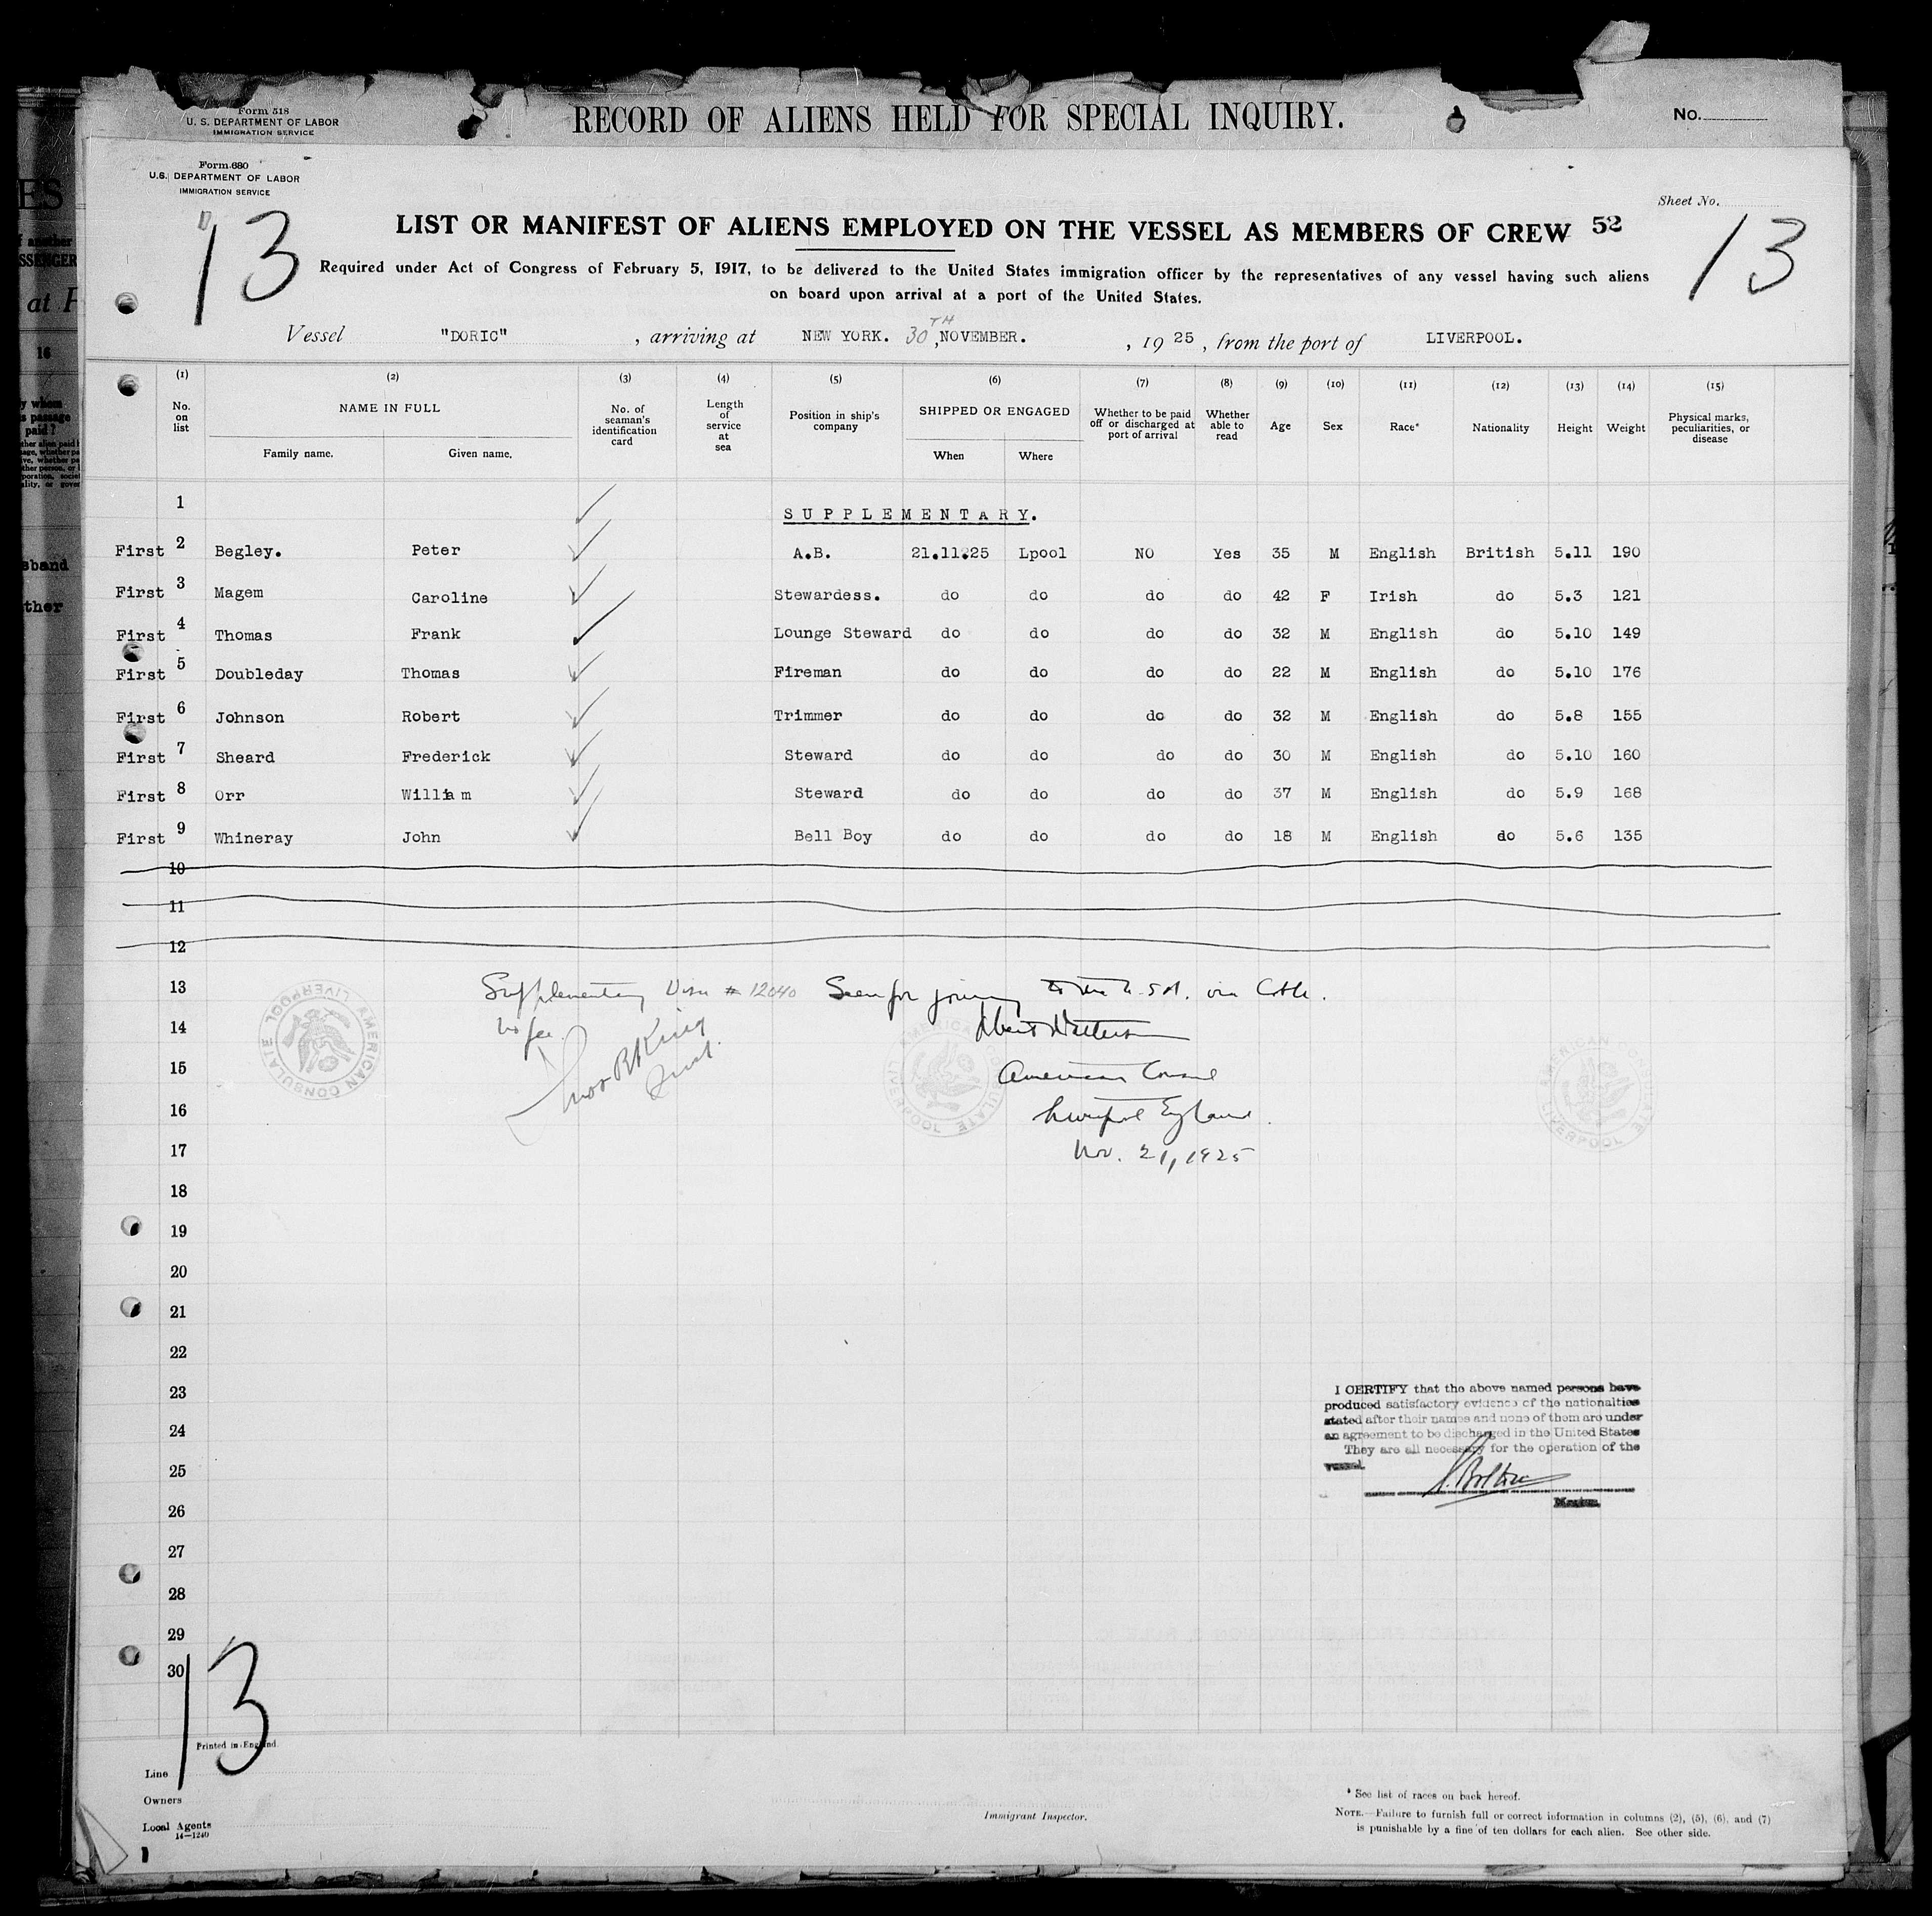 Form 518
U. S. DEPARTMENT OF LABOR
IMMIGRATION SERVICE
RECORD OF ALIENS HELD FOR SPECIAL INQUIRY.
No.
Form 680
U.S. DEPARTMENT OF LABOR
IMMIGRATION SERVICE
Sheet No.
13
LIST OR MANIFEST OF ALIENS EMPLOYED ON THE VESSEL AS MEMBERS OF CREW 52
13
Required under Act of Congress of February 5, 1917, to be delivered to the United States immigration officer by the representatives of any vessel having such aliens
on board upon arrival at a port of the United States.
Vessel "DORIC" , arriving at NEW YORK. 30TH ,NOVEMBER. , 19 25 , from the port of LIVERPOOL.
(1) (2) (3) (4) (5) (6) (7) (8) (9) (10) (11) (12) (13) (14) (15)
No. on list NAME IN FULL Family name. Given name. No. of seaman's identification card Length of service at sea Position in ship's company SHIPPED OR ENGAGED When Where Whether to be paid off or discharged at port of arrival Whether able to read Age Sex Race* Nationality Height Weight Physical marks, peculiarities, or disease
1 SUPPLEMENTARY.
First 2 Begley. Peter A.B. 21.11.25 Lpool NO Yes 35 M English British 5.11 190
First 3 Magem Caroline Stewardess. do do do do 42 F Irish do 5.3 121
First 4 Thomas Frank Lounge Steward do do do do 32 M English do 5.10 149
First 5 Doubleday Thomas Fireman do do do do 22 M English do 5.10 176
First 6 Johnson Robert Trimmer do do do do 32 M English do 5.8 155
First 7 Sheard Frederick Steward do do do do 30 M English do 5.10 160
First 8 Orr William Steward do do do do 37 M English do 5.9 168
First 9 Whineray John Bell Boy do do do do 18 M English do 5.6 135
10
11
12
13 Supplementary Visa # 12040 Seen for journey to the U.S.A. via Cobh.
14 No fee.
15 American Consul
16 Liverpool England.
17 Nov. 21, 1925
AMERICAN CONSULATE LIVERPOOL
AMERICAN CONSULATE LIVERPOOL
AMERICAN CONSULATE LIVERPOOL
18
19
20
21
22
23
24
25
26
27
28
29
30
I CERTIFY that the above named persons have
produced satisfactory evidence of the nationalties
stated after their names and none of them are under
an agreement to be discharged in the United States
They are all necessary for the operation of the
vessel.
Master.
13
Printed in England.
Line
Owners
Local Agents
14—1240
Immigrant Inspector.
* See list of races on back hereof.
NOTE.—Failure to furnish full or correct information in columns (2), (5), (6), and (7)
is punishable by a fine of ten dollars for each alien. See other side.